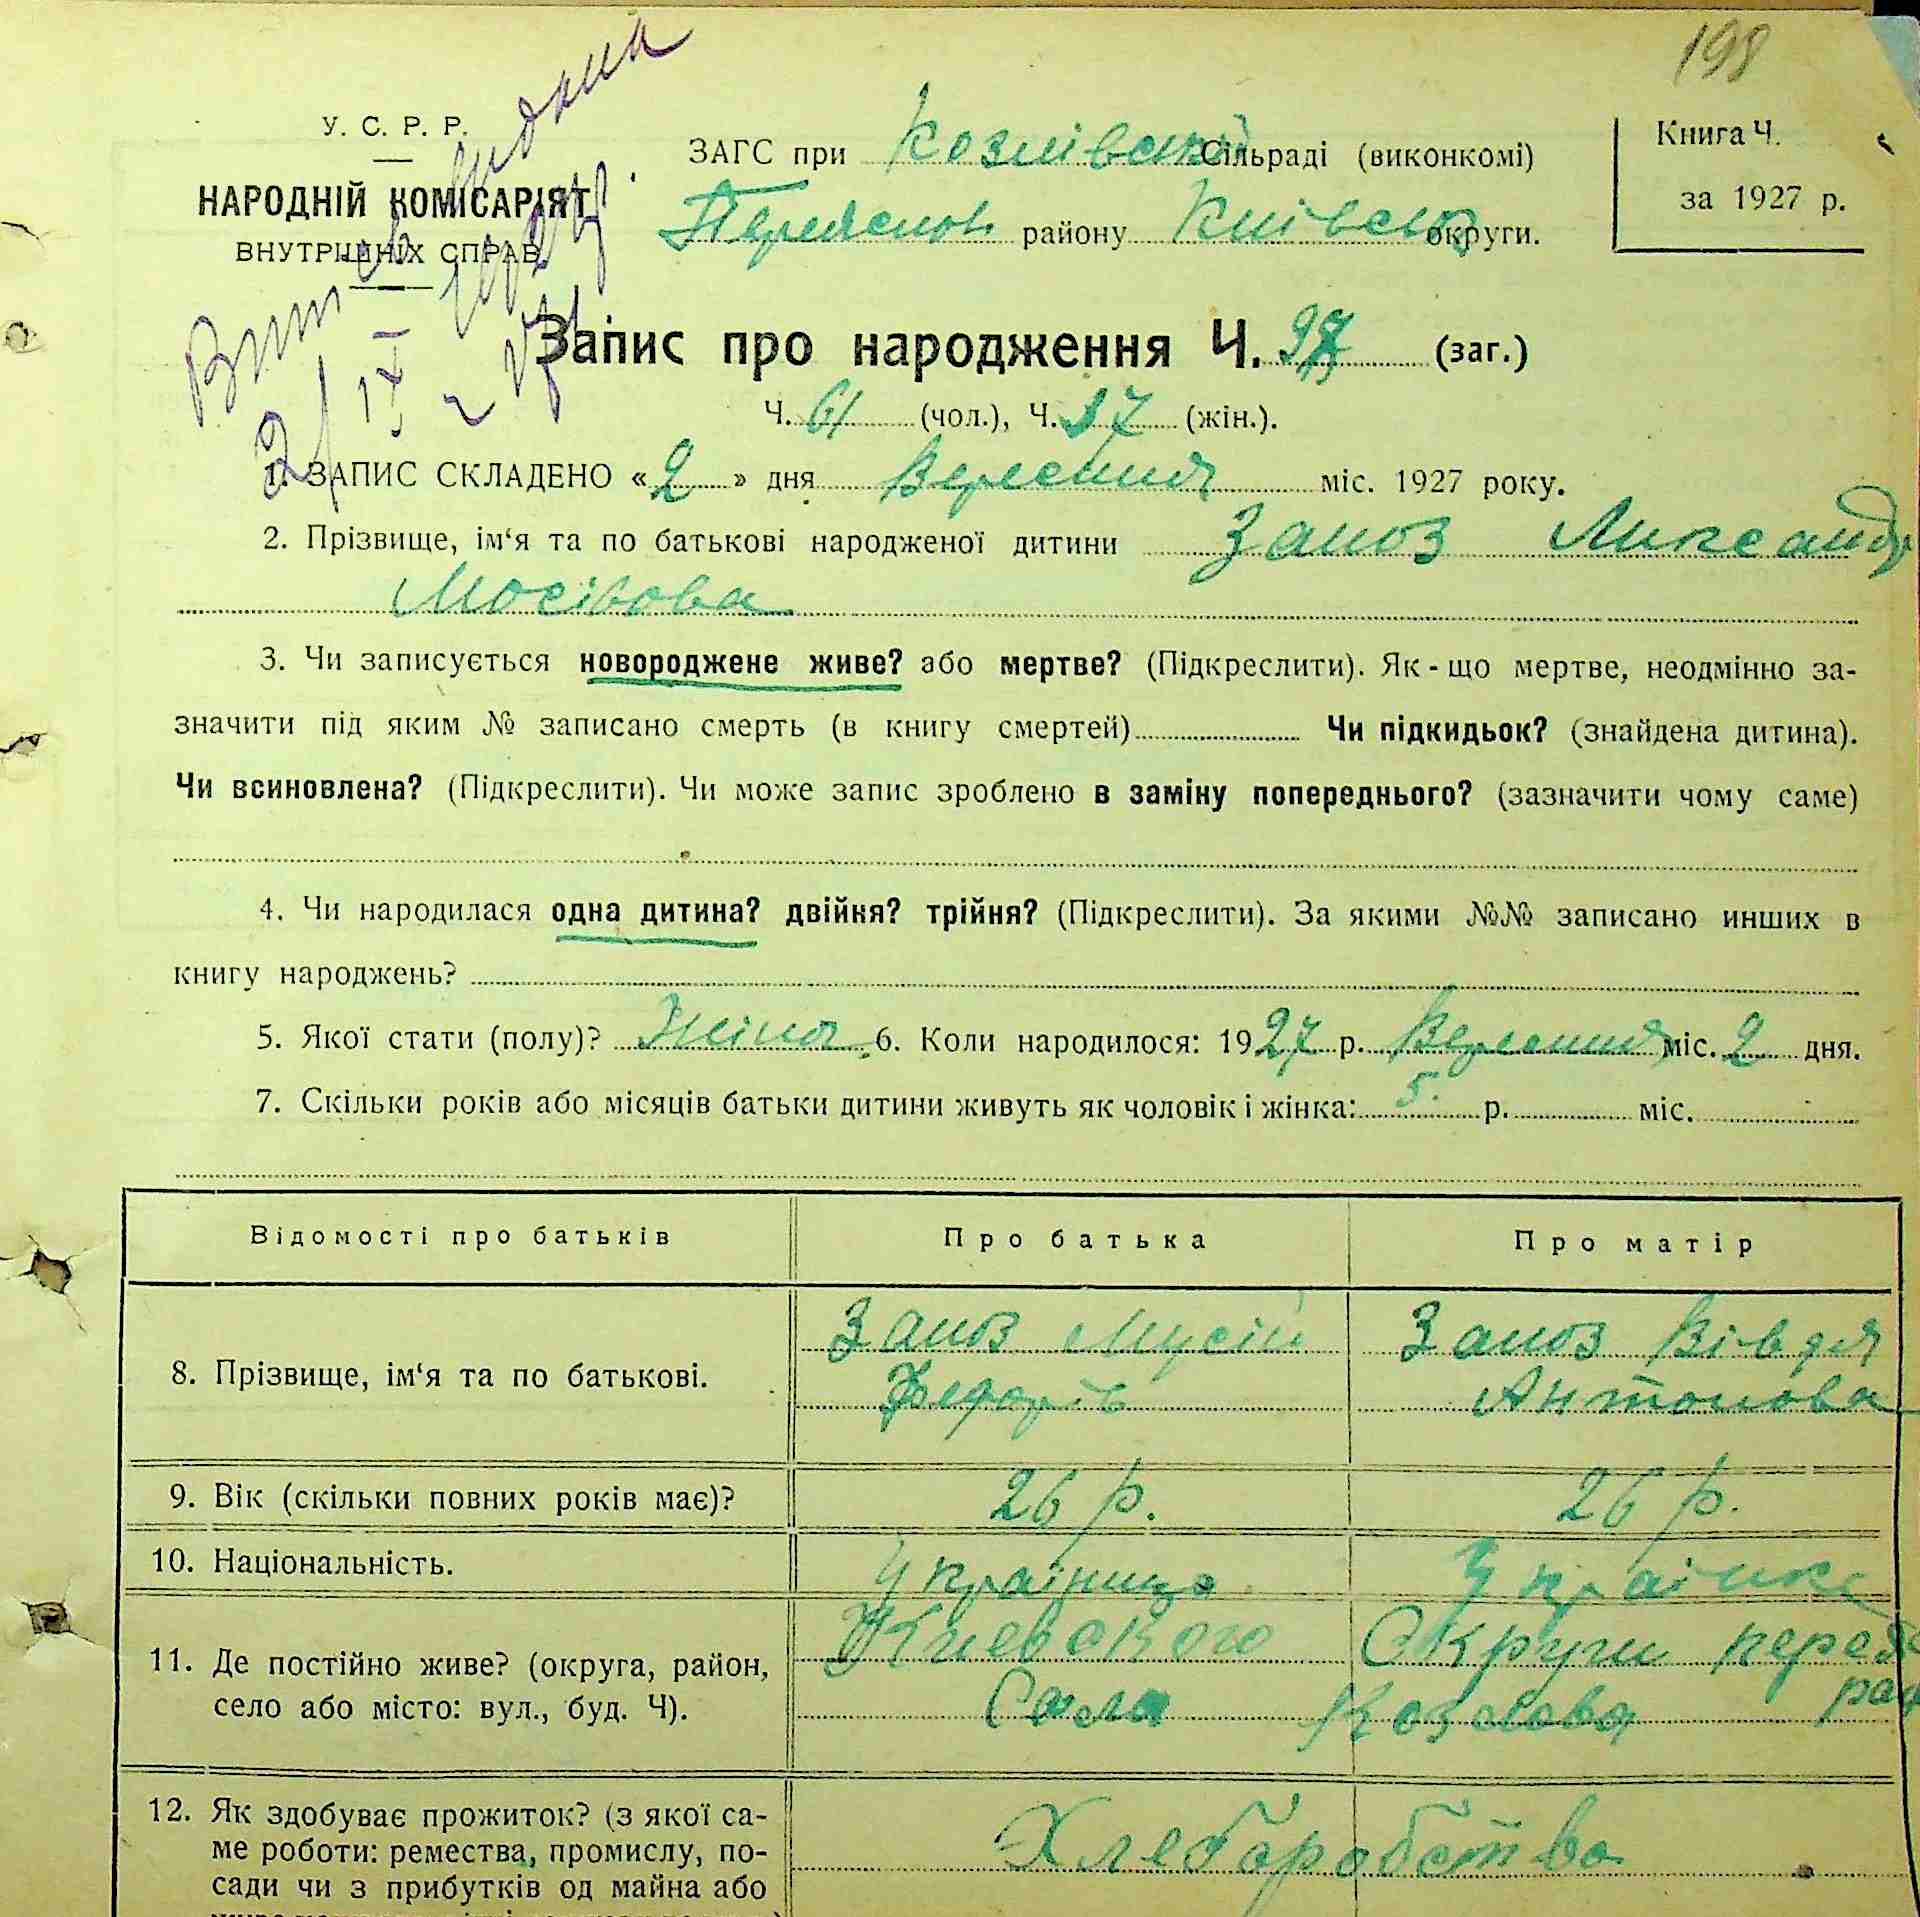 198
У. С. Р. Р.
НАРОДНІЙ КОМІСАРІЯТ
ВНУТРІШНІХ СПРАВ.
ЗАГС при Козлівській Сільраді (виконкомі)
Переяслов району Київськ округи.
Книга Ч.
за 1927 р.
Запис про народження Ч. (заг.)
Ч. 61 (чол.), Ч. 37 (жін.).
1. ЗАПИС СКЛАДЕНО «2» дня Вересния міс. 1927 року.
2. Прізвище, ім‘я та по батькові народженої дитини Заноз Ликсандр
Мосівова
3. Чи записується новороджене живе? або мертве? (Підкреслити). Як-що мертве, неодмінно за-
значити під яким № записано смерть (в книгу смертей) Чи підкидьок? (знайдена дитина).
Чи всиновлена? (Підкреслити). Чи може запис зроблено в заміну попереднього? (зазначити чому саме)
4. Чи народилася одна дитина? двійня? трійня? (Підкреслити). За якими №№ записано инших в
книгу народжень?
5. Якої стати (полу)? Жіноч. 6. Коли народилося: 1927 р. Вересния міс. 2 дня.
7. Скільки років або місяців батьки дитини живуть як чоловік і жінка: 5. р. міс.
Відомості про батьків Про батька Про матір
8. Прізвище, ім‘я та по батькові. Заноз Мусій Заноз Вівдя
Федорів Антонова
9. Вік (скільки повних років має)? 26 р. 26 р.
10. Національність. Українць Українка
11. Де постійно живе? (округа, район, Киевского Округи перея
село або місто: вул., буд. Ч). Села Козлова рай
12. Як здобуває прожиток? (з якої са-
ме роботи: ремества, промислу, по- Хлеборобство
сади чи з прибутків од майна або